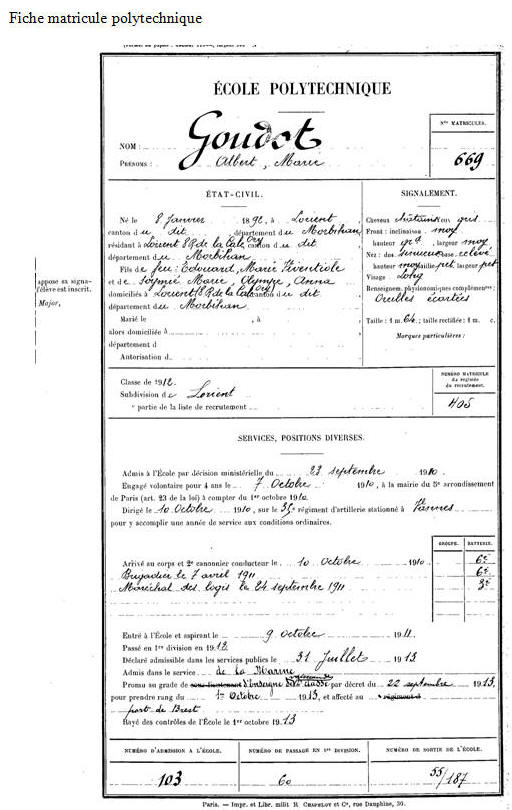 Fiche matricule polytechnique
ÉCOLE POLYTECHNIQUE
NOM : Goudot
PRÉNOMS : Albert, Marie
Nos MATRICULES.
669
ÉTAT-CIVIL.
Né le 8 Janvier 1892, à Lorient
canton du dit département du Morbihan
résidant à Lorient 8 R de la Cale Ory canton du dit
département du Morbihan
Fils de feu : Edouard, Marie
et de Marie, Olympe, Anna
domiciliés à Lorient 8 R de la Cale Ory canton du dit
département du Morbihan
Marié le , à
alors domiciliée à
département d
Autorisation d
SIGNALEMENT.
Cheveux châtains yeux gris
Front : inclinaison moy
hauteur gde, largeur moy
Nez : dos sinueux base relevé
hauteur moy saillie pet largeur pet
Visage : Long
Renseignem. physionomiques complémres :
Oreilles écartées
Taille : 1 m. 64 ; taille rectifiée : 1 m. c.
Marques particulières :
appose sa signa-
l'élève est inscrit.
Major,
Classe de 1912.
Subdivision de Lorient
e partie de la liste de recrutement
NUMÉRO MATRICULE
du registre
du recrutement.
405
SERVICES, POSITIONS DIVERSES.
Admis à l'École par décision ministérielle du 23 septembre 1910.
Engagé volontaire pour 4 ans le 7 Octobre 1910, à la mairie du 5e arrondissement
de Paris (art. 23 de la loi) à compter du 1er octobre 1910.
Dirigé le 10 Octobre 1910, sur le 35e régiment d'artillerie stationné à Vannes
pour y accomplir une année de service aux conditions ordinaires.
GROUPE. BATTERIE.
Arrivé au corps et 2e canonnier conducteur le 10 Octobre 1910 6e
Brigadier le 7 avril 1911 6e
Maréchal des logis le 24 septembre 1911 3e
Entré à l'École et aspirant le 9 octobre 1911.
Passé en 1re division en 1912.
Déclaré admissible dans les services publics le 31 Juillet 1913
Admis dans le service de la Marine
Promu au grade de sous-lieutenant d'Enseigne de classe par décret du 22 septembre 1913,
pour prendre rang du 1er Octobre 1913, et affecté au régiment d
port de Brest
Rayé des contrôles de l'École le 1er octobre 1913
NUMÉRO D'ADMISSION A L'ÉCOLE.
103
NUMÉRO DE PASSAGE EN 1re DIVISION.
60
NUMÉRO DE SORTIE DE L'ÉCOLE.
55/187
Paris. — Impr. et Libr. milit R CHAPELOT et Ce, rue Dauphine, 30.